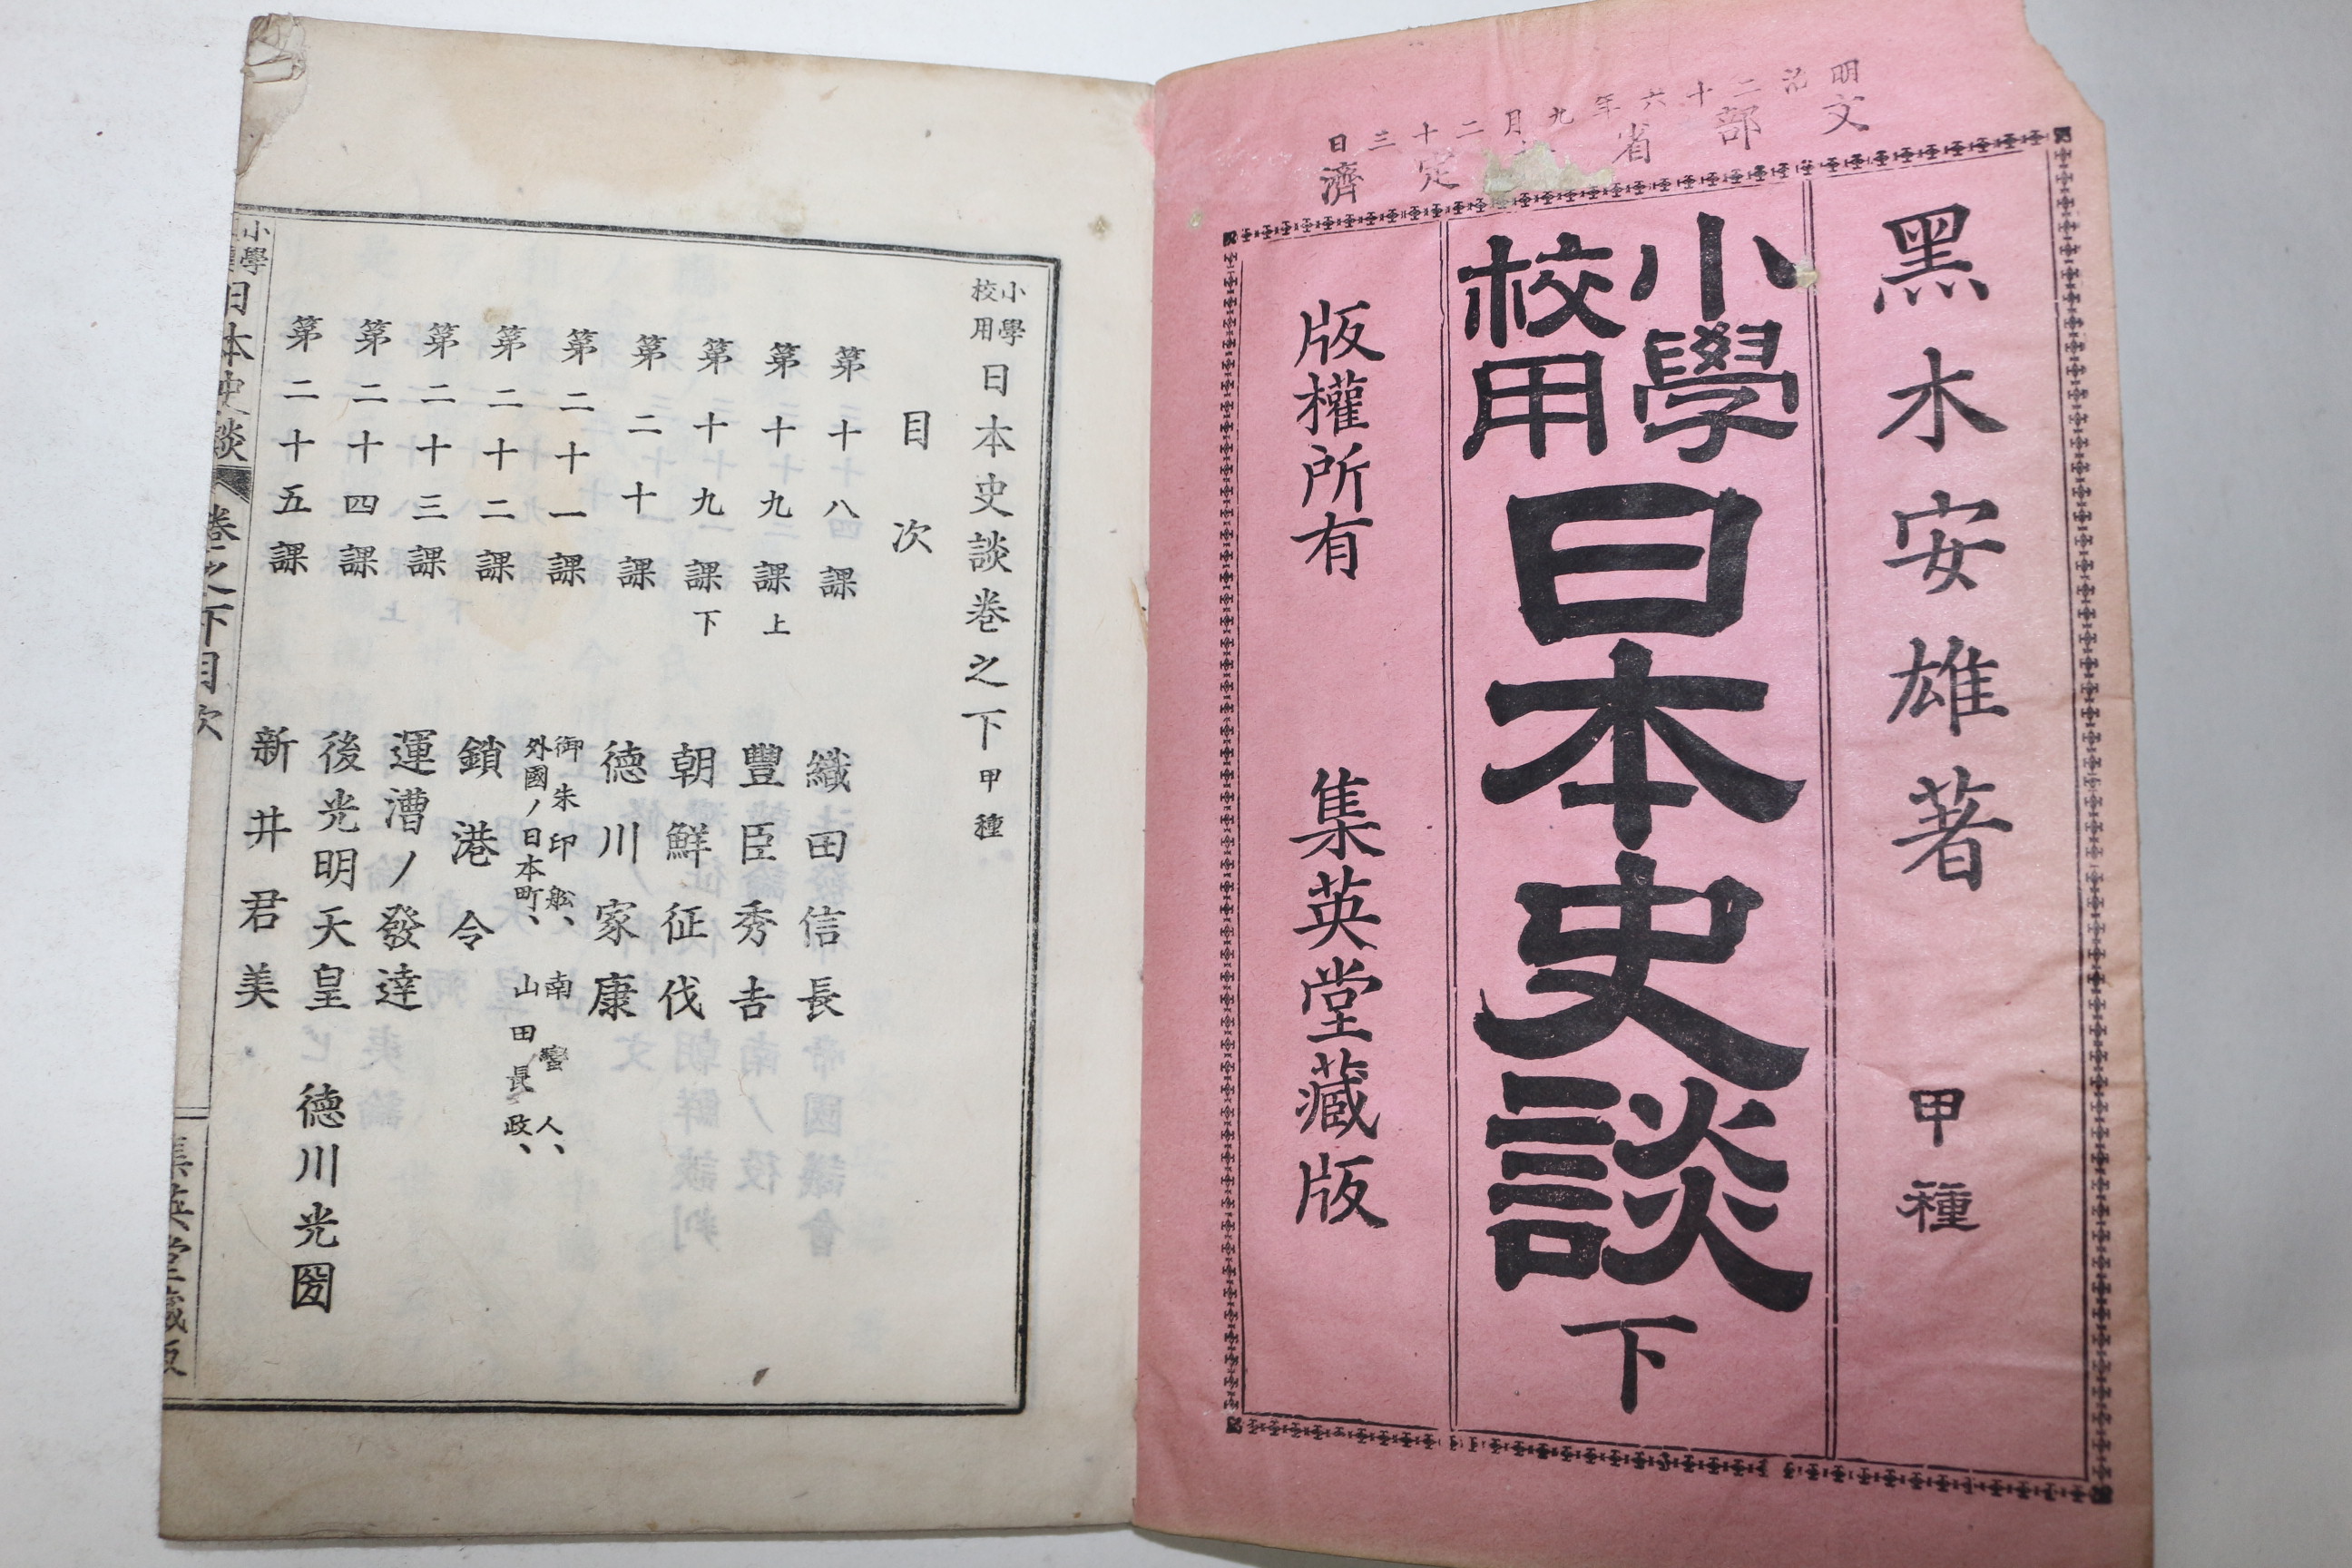 明治二十六年九月二十三日
文部省定濟
黑木安雄著 甲種
小學校用日本史談下
版權所有 集英堂藏版
小學校用日本史談卷之下 甲種
目次
第十八課 織田信長
第十九課上 豐臣秀吉
第十九課下 朝鮮征伐
第二十課 徳川家康
第二十一課 御朱印舩、南蠻人、外國ノ日本町、山田長政、
第二十二課 鎖港令
第二十三課 運漕ノ發達
第二十四課 後光明天皇 徳川光圀
第二十五課 新井君美
小學 日本史談 卷之下目次 集英堂藏版